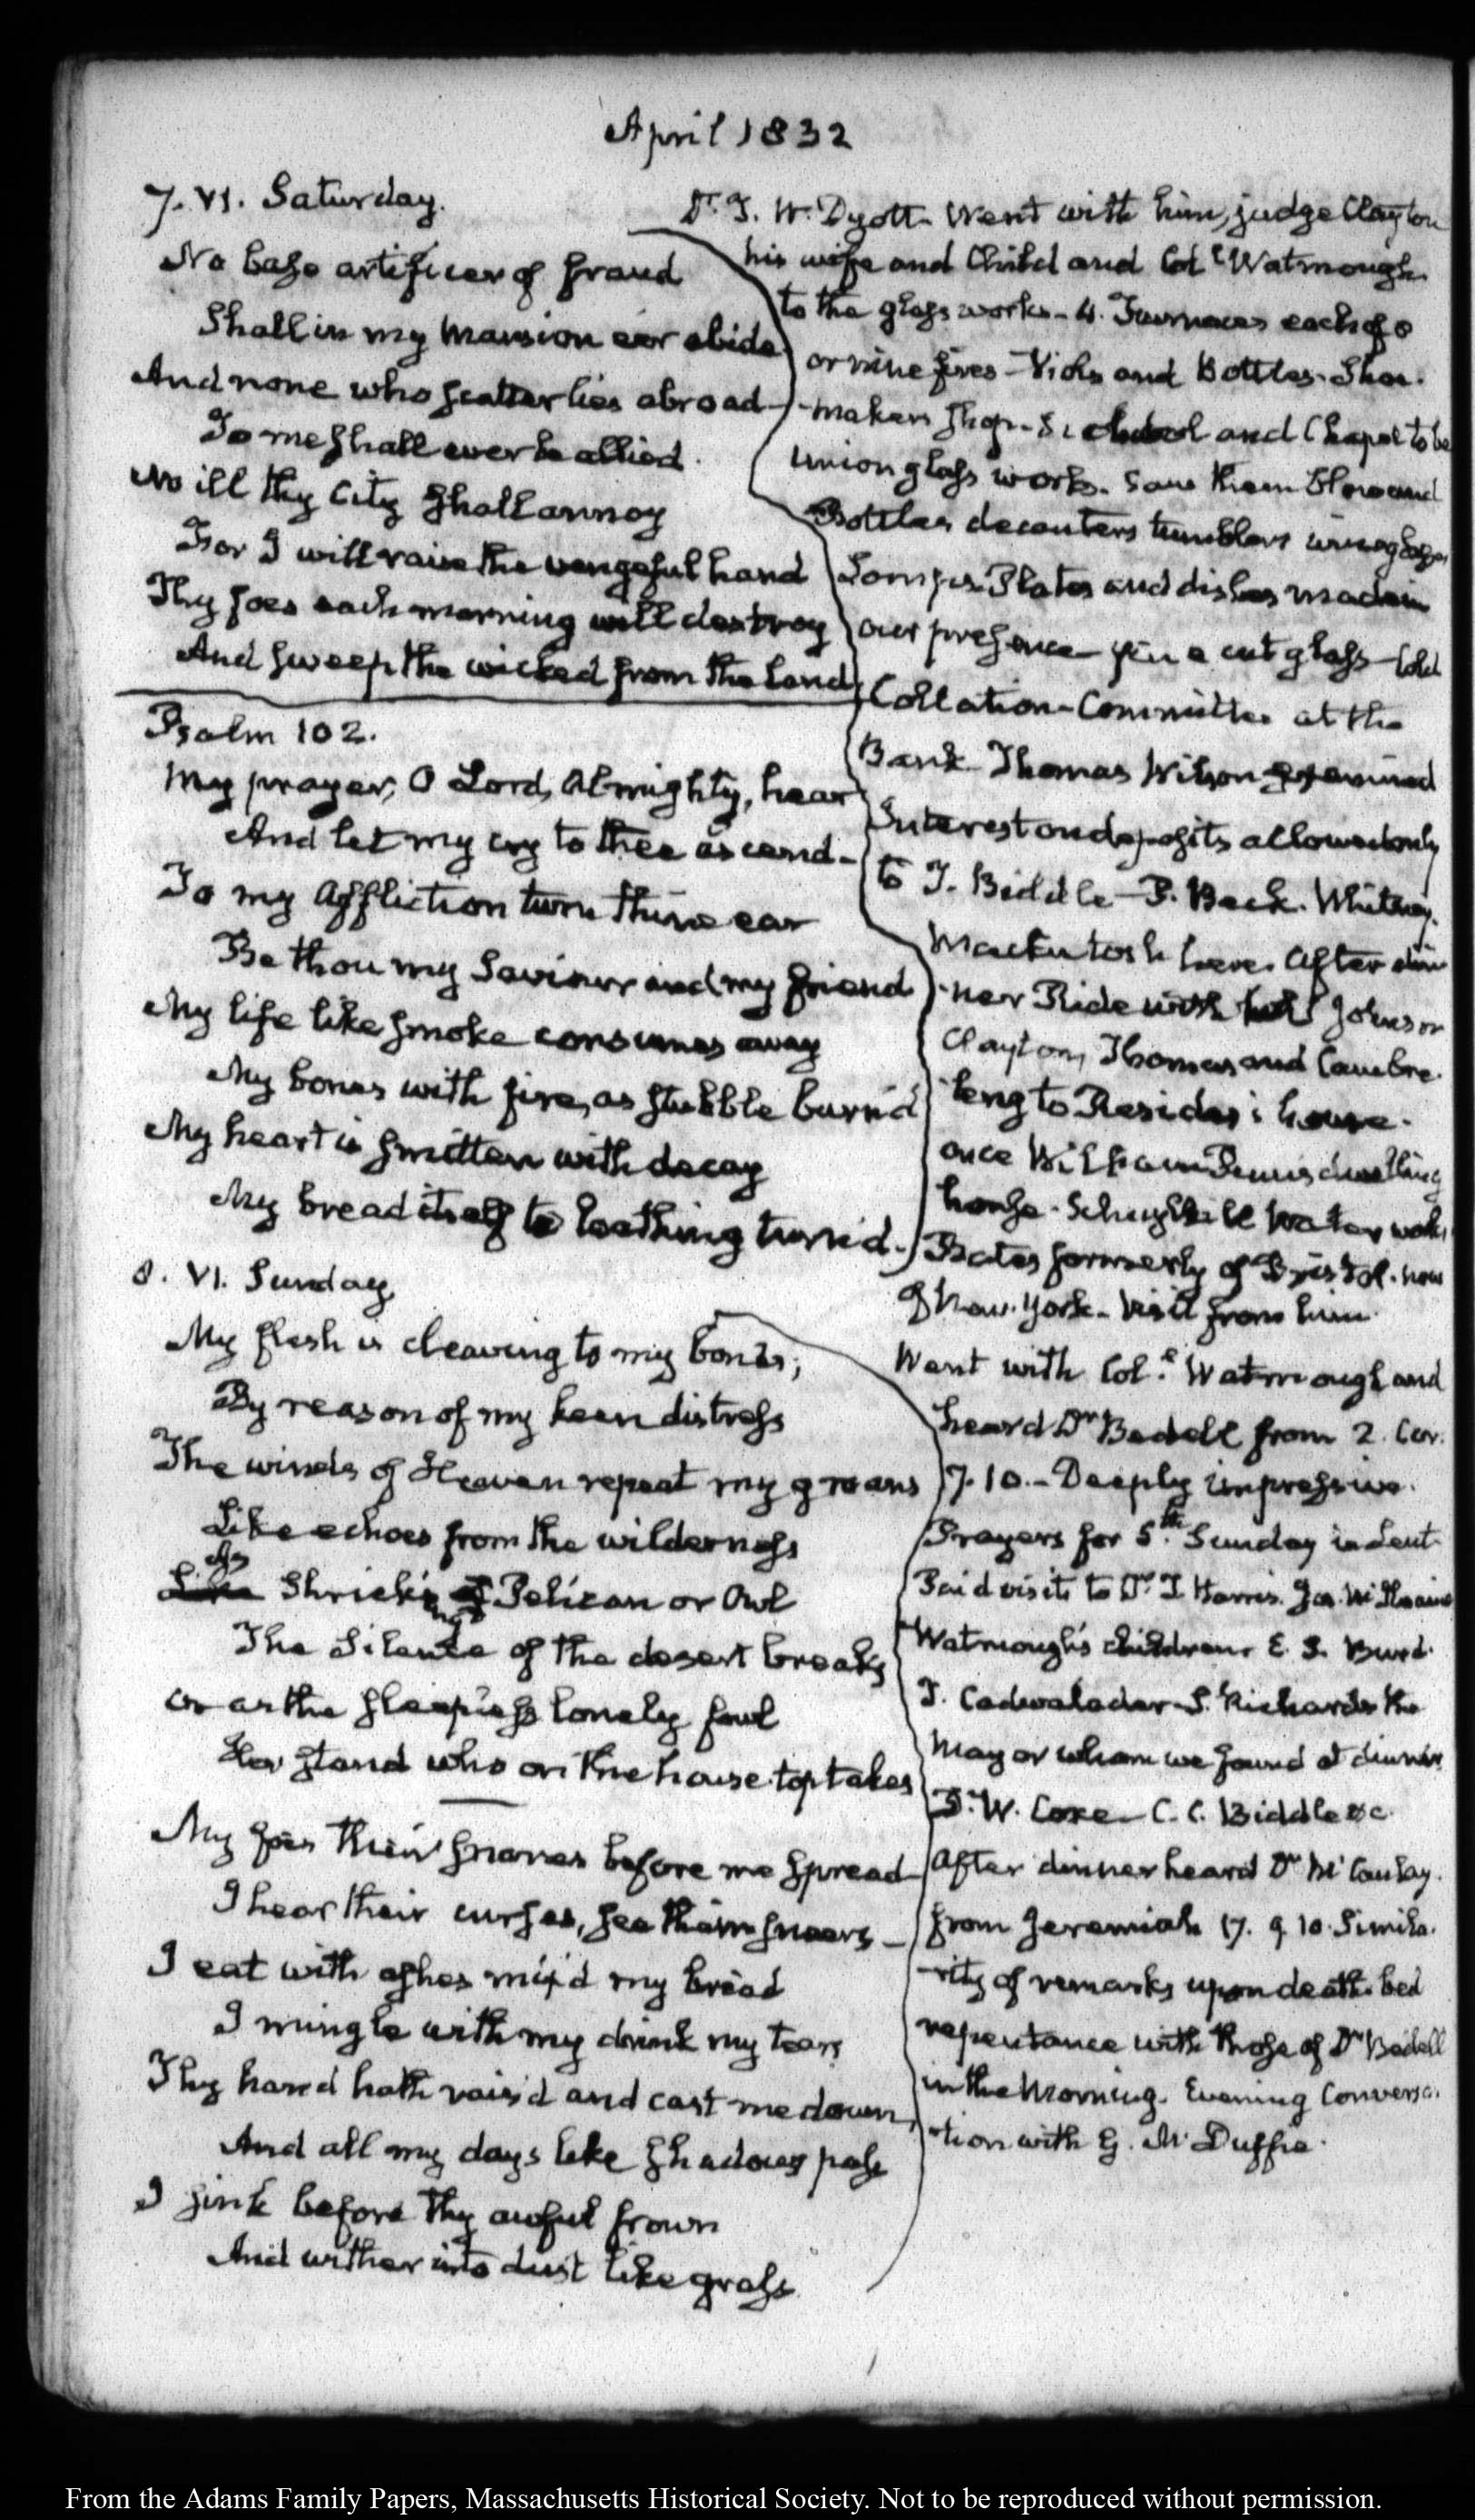 April 1832
7. VI. Saturday.
No base artificer of fraud
Shall in my Mansion e'er abide
And none who scatter lies abroad
To me shall ever be allied.
No ill thy City shall annoy
For I will raise the vengeful hand
Thy foes each morning will destroy
And sweep the wicked from the Land
Psalm 102.
My prayer, O Lord, Almighty, hear
And let my cry to thee ascend-
To my affliction turn thine ear
Be thou my Saviour and my friend
My life like smoke consumes away
My bones with fire, as stubble burn'd
My heart is smitten with decay
My bread itself to loathing turn'd.
Dr. T. W. Dyott. Went with him, judge Clayton
his wife and Child and Coll. Watmough
to the glass works- 4. Furnaces each of 8
or nine fires- Vials and Bottles. Shoe-
-makers shop- School and Chapel to be
Union glass works. Saw them blow and
Bottles decanters tumblers wineglasses
Lamps. Plates and dishes made in
our presence a cut glass- Cold
Collation- Committee at the
Bank. Thomas Wilson examined
Interest on deposits allowed only
to T. Biddle- P. Beck. Whitney.
Mackintosh here. After din
-ner Ride with Johnson
Clayton, Thomas and Cambre-
leng to house-
once dwelling
house. Schuylkill Water works
Bates formerly of Bristol. now
of New-York- Visit from him.
8. VI. Sunday
My flesh is cleaving to my bones;
By reason of my keen distress
The winds of Heaven repeat my groans
Like echoes from the wilderness
As
Like Shrieking Pelican or Owl
The Silence of the desert breaks
or as the sleepless lonely fowl
Her stand who on the house-top takes
My foes their snares before me spread
I hear their curses, see their sneers-
I eat with ashes mix'd my bread
I mingle with my drink my tears
Thy hand hath rais'd and cast me down,
And all my days like shadows pass
I sink before thy awful frown
And wither into dust like grass
Went with Coll. Watmough and
heard Dr Bedell from 2. Cor.
7. 10.- Deeply impressive.
Prayers for 5th. Sunday in Lent.
Paid visits to Dr. T Harris. Jos. McIlvaine
Watmough's children. E. S. Burd.
T. Cadwalader- S. Richards the
Mayor whom we found at dinner
D. W. Coxe- C. C. Biddle &c.
After dinner heard Dr McCauley.
from Jeremiah 17. 9. 10. Simila-
-rity of remarks upon death bed
repentance with those of Dr Bedell
in the Morning. Evening Conversa-
-tion with G. McDuffie.
From the Adams Family Papers, Massachusetts Historical Society. Not to be reproduced without permission.